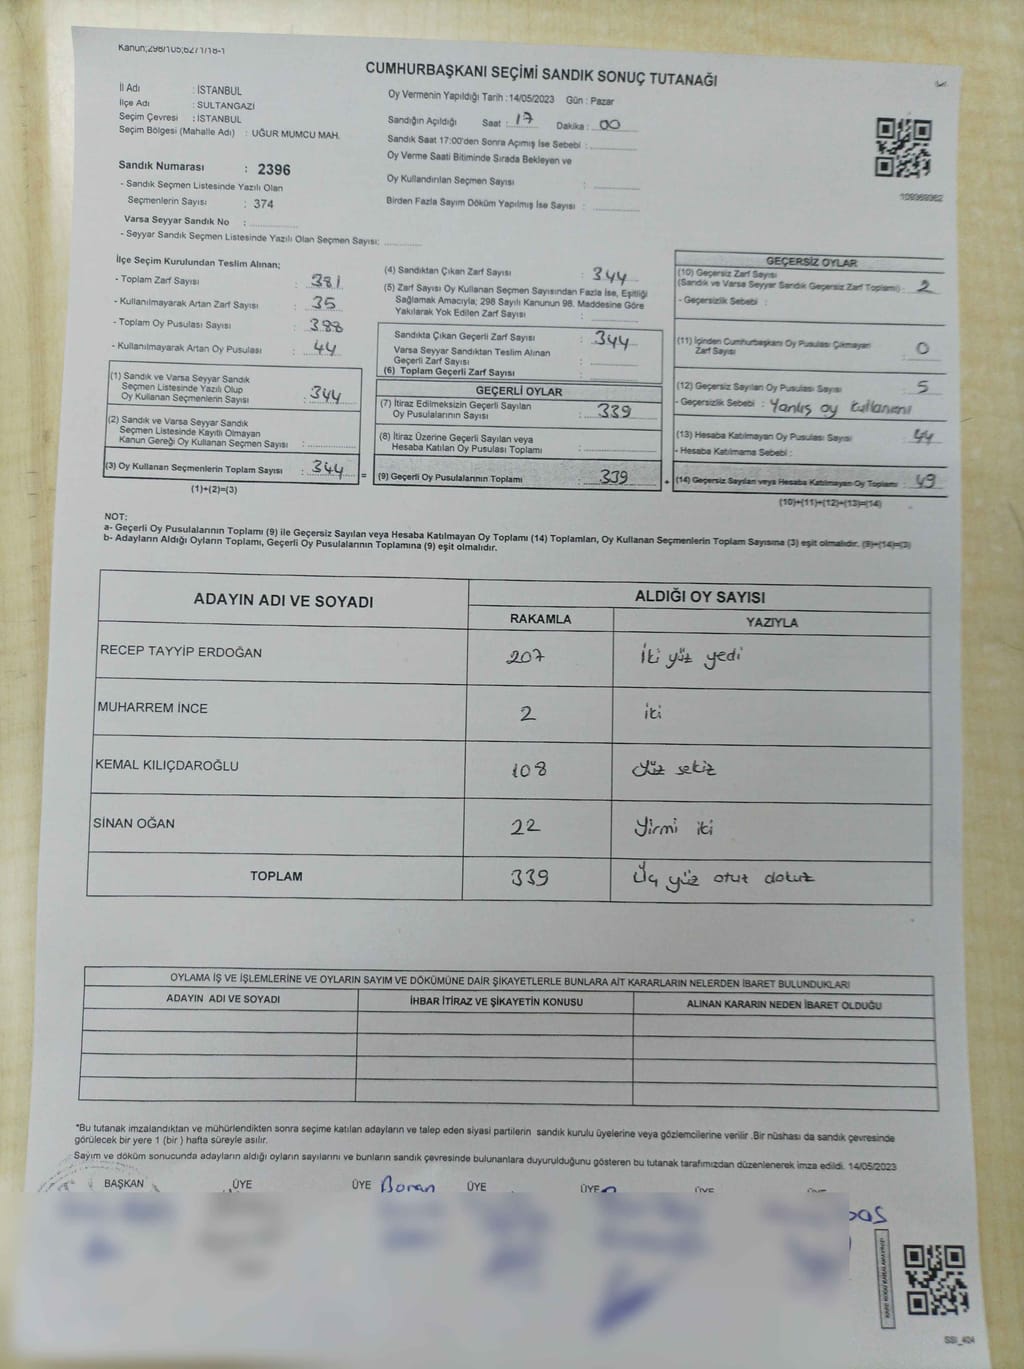 Kanun;298/105;6271/18-1
CUMHURBAŞKANI SEÇİMİ SANDIK SONUÇ TUTANAĞI
İl Adı : İSTANBUL
İlçe Adı : SULTANGAZİ
Seçim Çevresi : İSTANBUL
Seçim Bölgesi (Mahalle Adı) : UĞUR MUMCU MAH.
Sandık Numarası : 2396
- Sandık Seçmen Listesinde Yazılı Olan
Seçmenlerin Sayısı : 374
Varsa Seyyar Sandık No :
- Seyyar Sandık Seçmen Listesinde Yazılı Olan Seçmen Sayısı:
Oy Vermenin Yapıldığı Tarih : 14/05/2023 Gün : Pazar
Sandığın Açıldığı Saat : 17 Dakika : 00
Sandık Saat 17:00'den Sonra Açımış İse Sebebi :
Oy Verme Saati Bitiminde Sırada Bekleyen ve
Oy Kullandırılan Seçmen Sayısı :
Birden Fazla Sayım Döküm Yapılmış İse Sayısı :
109369362
İlçe Seçim Kurulundan Teslim Alınan;
- Toplam Zarf Sayısı : 381
- Kullanılmayarak Artan Zarf Sayısı : 35
- Toplam Oy Pusulası Sayısı : 388
- Kullanılmayarak Artan Oy Pusulası : 44
(1) Sandık ve Varsa Seyyar Sandık
Seçmen Listesinde Yazılı Olup
Oy Kullanan Seçmenlerin Sayısı : 344
(2) Sandık ve Varsa Seyyar Sandık
Seçmen Listesinde Kayıtlı Olmayan
Kanun Gereği Oy Kullanan Seçmen Sayısı :
(3) Oy Kullanan Seçmenlerin Toplam Sayısı : 344 =
(1)+(2)=(3)
(4) Sandıktan Çıkan Zarf Sayısı : 344
(5) Zarf Sayısı Oy Kullanan Seçmen Sayısından Fazla İse, Eşitliği
Sağlamak Amacıyla; 298 Sayılı Kanunun 98. Maddesine Göre
Yakılarak Yok Edilen Zarf Sayısı :
Sandıkta Çıkan Geçerli Zarf Sayısı : 344
Varsa Seyyar Sandıktan Teslim Alınan
Geçerli Zarf Sayısı :
(6) Toplam Geçerli Zarf Sayısı :
GEÇERLİ OYLAR
(7) İtiraz Edilmeksizin Geçerli Sayılan
Oy Pusulalarının Sayısı : 339
(8) İtiraz Üzerine Geçerli Sayılan veya
Hesaba Katılan Oy Pusulası Toplamı :
(9) Geçerli Oy Pusulalarının Toplamı : 339 +
GEÇERSİZ OYLAR
(10) Geçersiz Zarf Sayısı
(Sandık ve Varsa Seyyar Sandık Geçersiz Zarf Toplamı) : 2
- Geçersizlik Sebebi :
(11) İçinden Cumhurbaşkanı Oy Pusulası Çıkmayan
Zarf Sayısı : 0
(12) Geçersiz Sayılan Oy Pusulası Sayısı : 5
- Geçersizlik Sebebi : Yanlış oy kullanımı
(13) Hesaba Katılmayan Oy Pusulası Sayısı : 44
- Hesaba Katılmama Sebebi :
(14) Geçersiz Sayılan veya Hesaba Katılmayan Oy Toplamı : 49
(10)+(11)+(12)+(13)=(14)
NOT:
a- Geçerli Oy Pusulalarının Toplamı (9) ile Geçersiz Sayılan veya Hesaba Katılmayan Oy Toplamı (14) Toplamları, Oy Kullanan Seçmenlerin Toplam Sayısına (3) eşit olmalıdır. (9)+(14)=(3)
b- Adayların Aldığı Oyların Toplamı, Geçerli Oy Pusulalarının Toplamına (9) eşit olmalıdır.
ADAYIN ADI VE SOYADI
ALDIĞI OY SAYISI
RAKAMLA YAZIYLA
RECEP TAYYİP ERDOĞAN 207 İki yüz yedi
MUHARREM İNCE 2 iki
KEMAL KILIÇDAROĞLU 108 Yüz sekiz
SİNAN OĞAN 22 Yirmi iki
TOPLAM 339 Üç yüz otuz dokuz
OYLAMA İŞ VE İŞLEMLERİNE VE OYLARIN SAYIM VE DÖKÜMÜNE DAİR ŞİKAYETLERLE BUNLARA AİT KARARLARIN NELERDEN İBARET BULUNDUKLARI
ADAYIN ADI VE SOYADI İHBAR İTİRAZ VE ŞİKAYETİN KONUSU ALINAN KARARIN NEDEN İBARET OLDUĞU
*Bu tutanak imzalandıktan ve mühürlendikten sonra seçime katılan adayların ve talep eden siyasi partilerin sandık kurulu üyelerine veya gözlemcilerine verilir .Bir nüshası da sandık çevresinde
görülecek bir yere 1 (bir ) hafta süreyle asılır.
Sayım ve döküm sonucunda adayların aldığı oyların sayılarını ve bunların sandık çevresinde bulunanlara duyurulduğunu gösteren bu tutanak tarafımızdan düzenlenerek imza edildi. 14/05/2023
BAŞKAN ÜYE ÜYE Boran ÜYE ÜYE ÜYE ÜYE
SSI_404